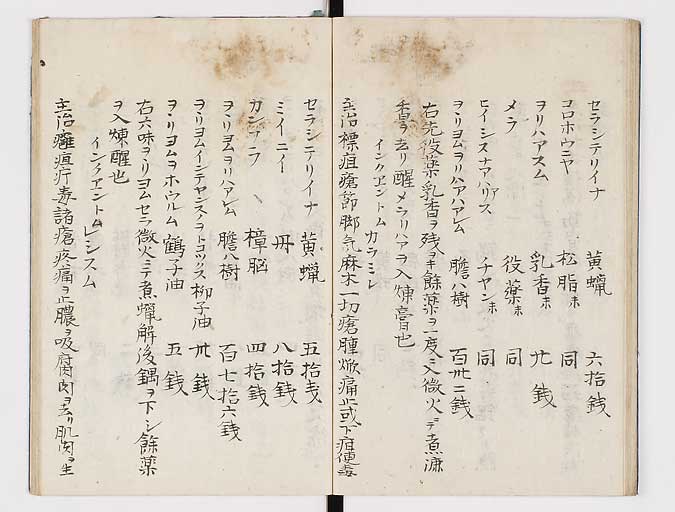 セラシテリイナ 黄蝋 六拾銭
コロホウニヤ 松脂ホ 同
ヲリハアスム 乳香ホ 廾銭
メラ 役薬ホ 同
ヒイシスナアハリアス チヤンホ 同
ヲヽリヨムヲリハアハアレム 膽八樹 百卅二銭
右先役薬乳香ヲ残シ其餘薬ヲ一度ニ入微火ニテ煮漉
香ヲ去リ醒メラリハアヲ入煉膏也
インクエントム カラミレ
主治標疽瘡節脚氣麻木一切瘡腫焮痛止或下疳便毒
セラシテリイナ 黄蝋 五拾戔
ミイニイ 丹 八拾銭
カンフラ 樟脳 四拾銭
ヲヽリヨムヲリハアレム 膽八樹 百七拾六銭
ヲヽリヨムインテヤンスノヲトコツクス 柳子油 卅銭
ヲヽリヨムヲホウルム 鶴子油 五銭
右六味ヲヽリヨムセラ微火ニテ煮蝋解後鍋ヲ下シ餘薬
ヲ入煉醒也
インクエントム レシスム
主治癰疽疔毒諸瘡疼痛ヲ止膿ヲ吸腐肉ヲ去リ肌肉ヲ生